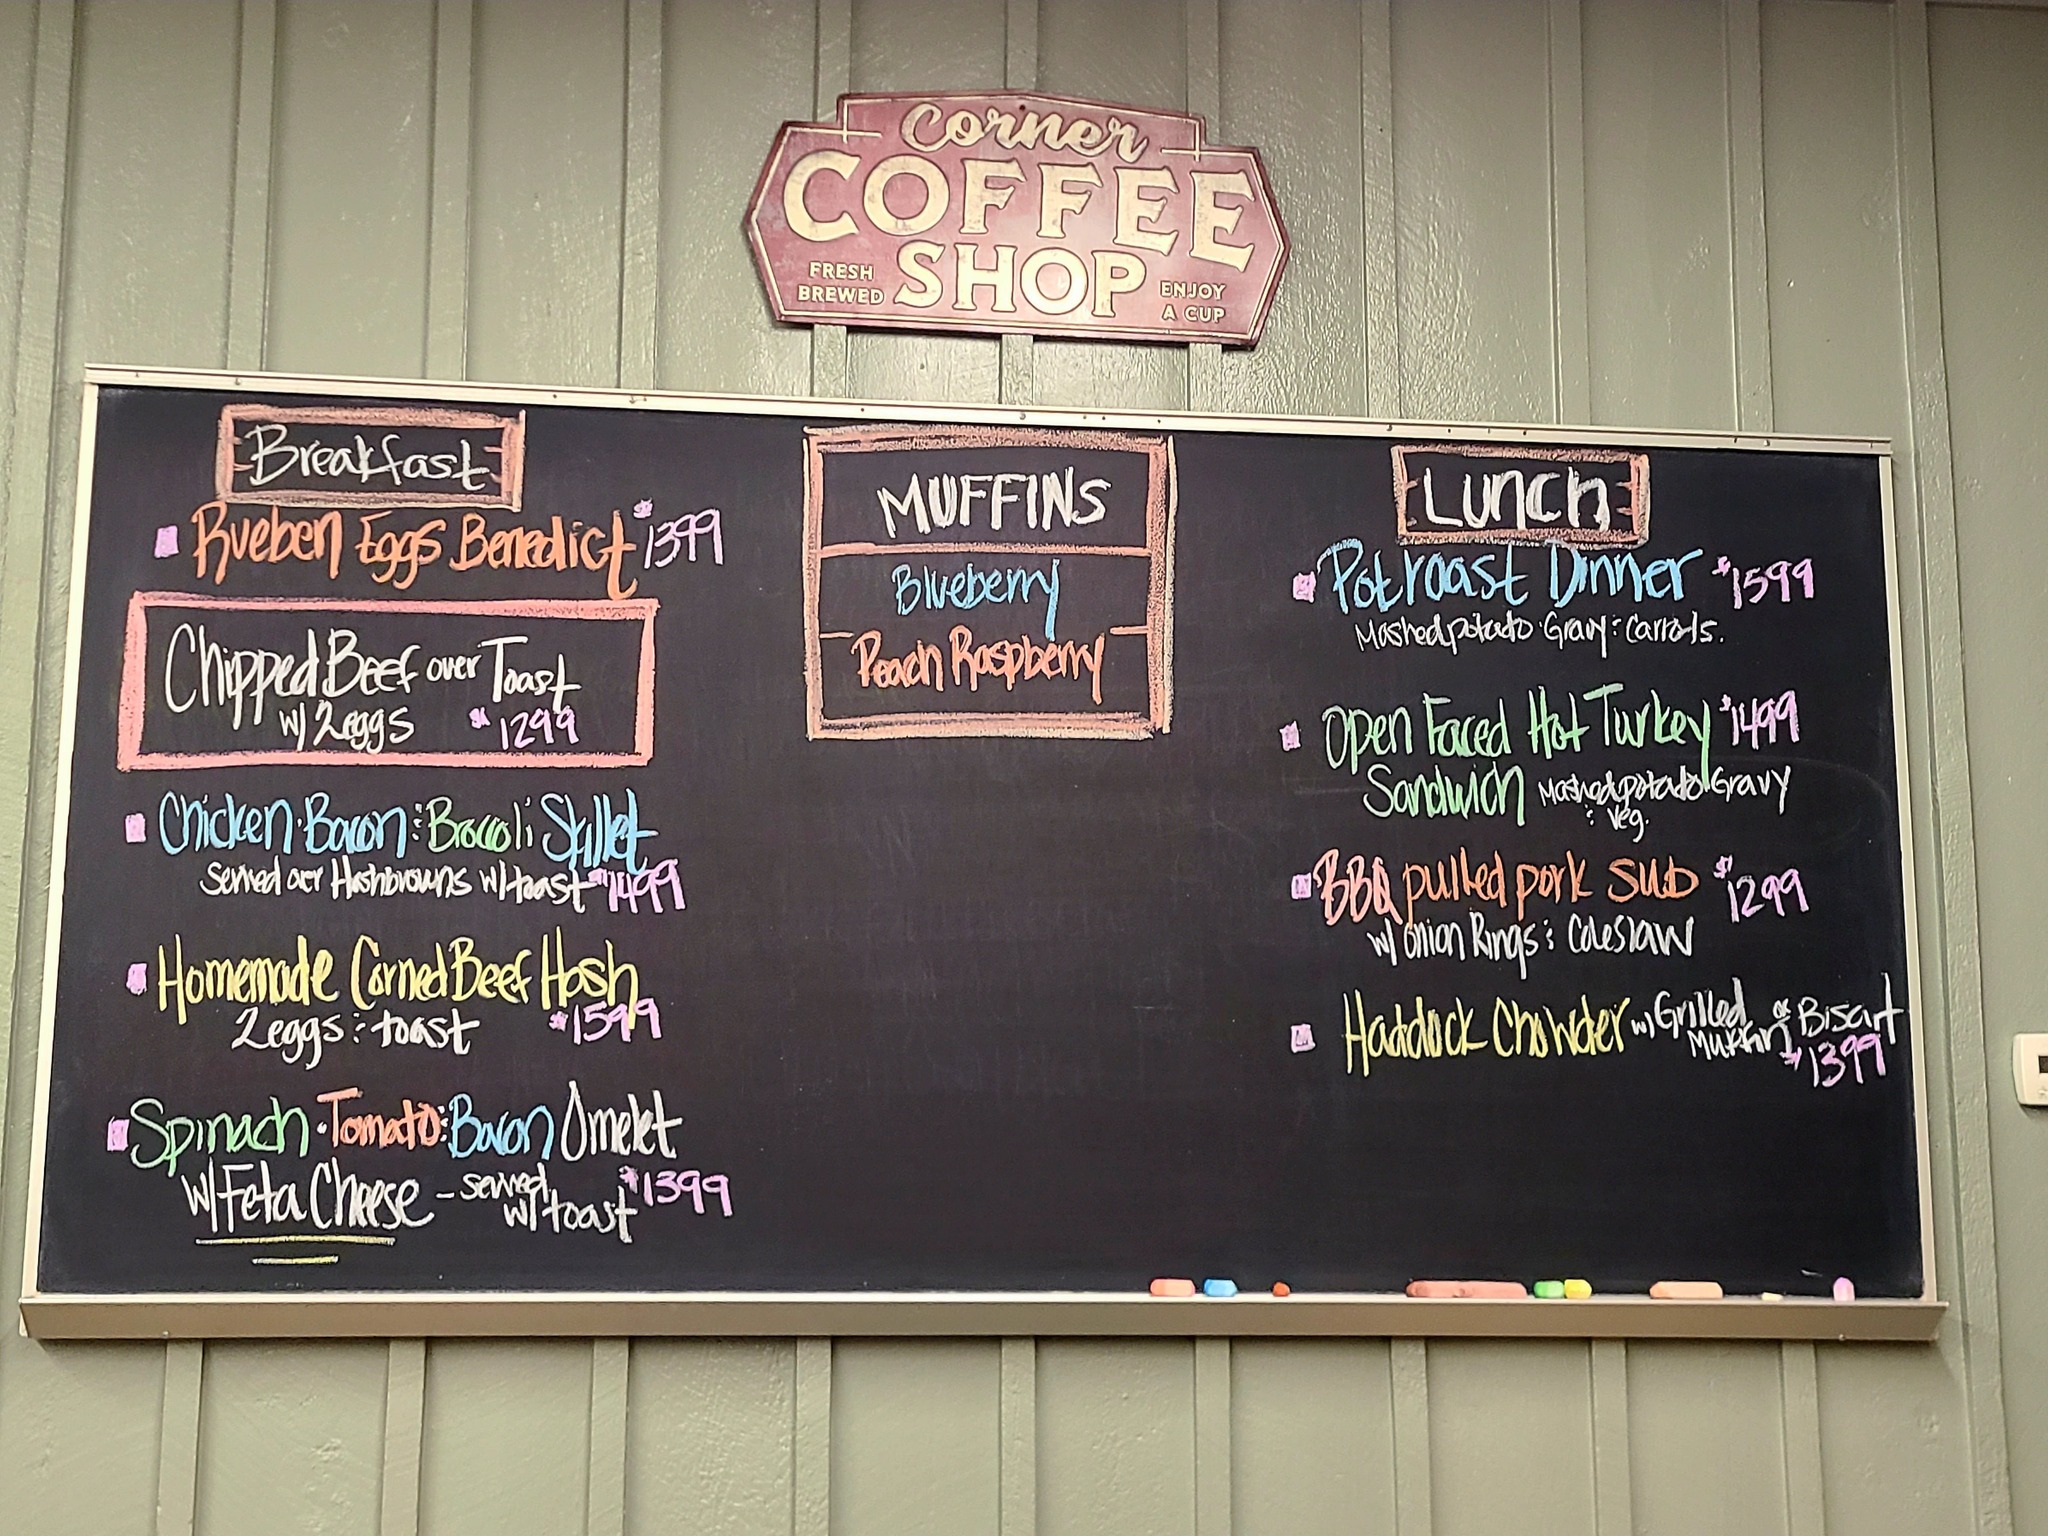 Corner
COFFEE
SHOP
FRESH
BREWED
ENJOY
A CUP
Breakfast
Rueben Eggs Benedict $1399
Chipped Beef over Toast
w/ 2eggs $1299
Chicken·Bacon:Broccoli Skillet
Served over Hashbrowns w/toast $1499
Homemade Corned Beef Hash
2eggs : toast $1599
Spinach·Tomato:Bacon Omelet
w/Feta Cheese - served
w/toast $1399
MUFFINS
Blueberry
Peach Raspberry
Lunch
Pot roast Dinner $1599
Mashed potato·Gravy:Carrots.
Open Faced Hot Turkey $1499
Sandwich Mashed potato Gravy
: Veg.
BBQ pulled pork SUB $1299
w/ Onion Rings : Coleslaw
Haddock Chowder w/ Grilled or Biscuit
Muffin $1399